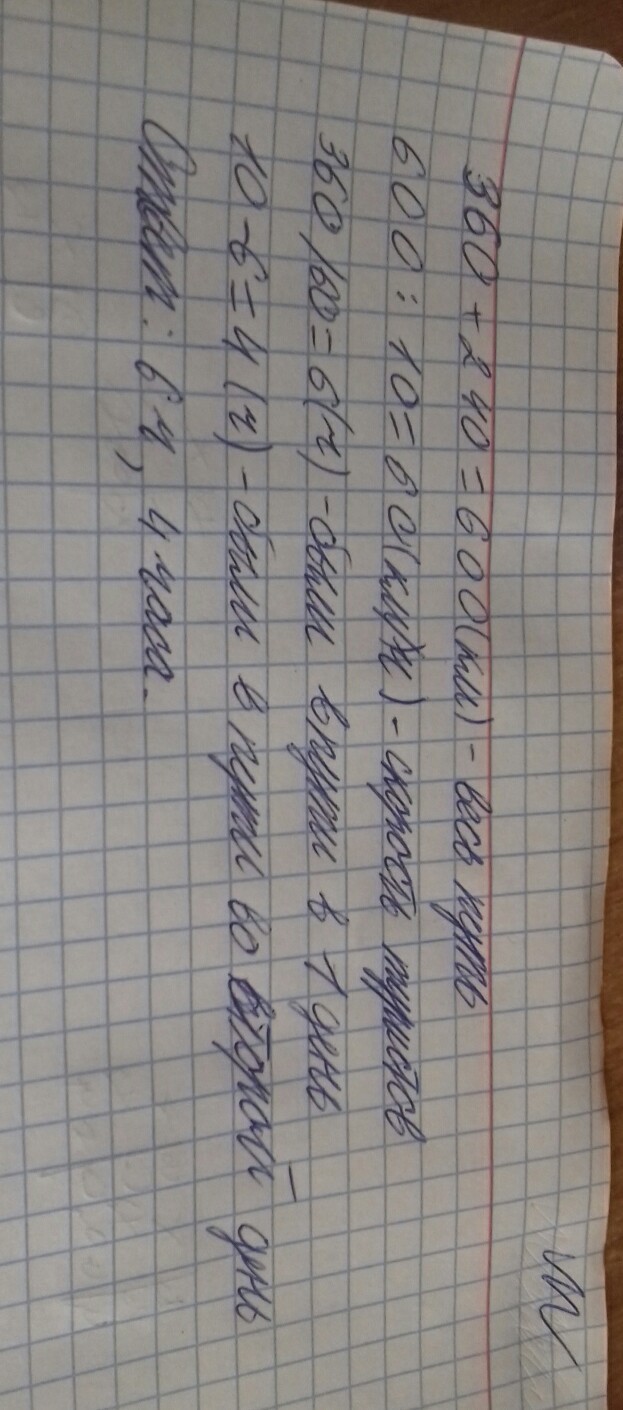 360 + 240 = 600 (км) - весь путь
600 : 10 = 60 (км/ч) - скорость туристов
360 / 60 = 6 (ч) - были в пути в 1 день
10 - 6 = 4 (ч) - были в пути во второй день
Ответ: 6 ч, 4 часа.